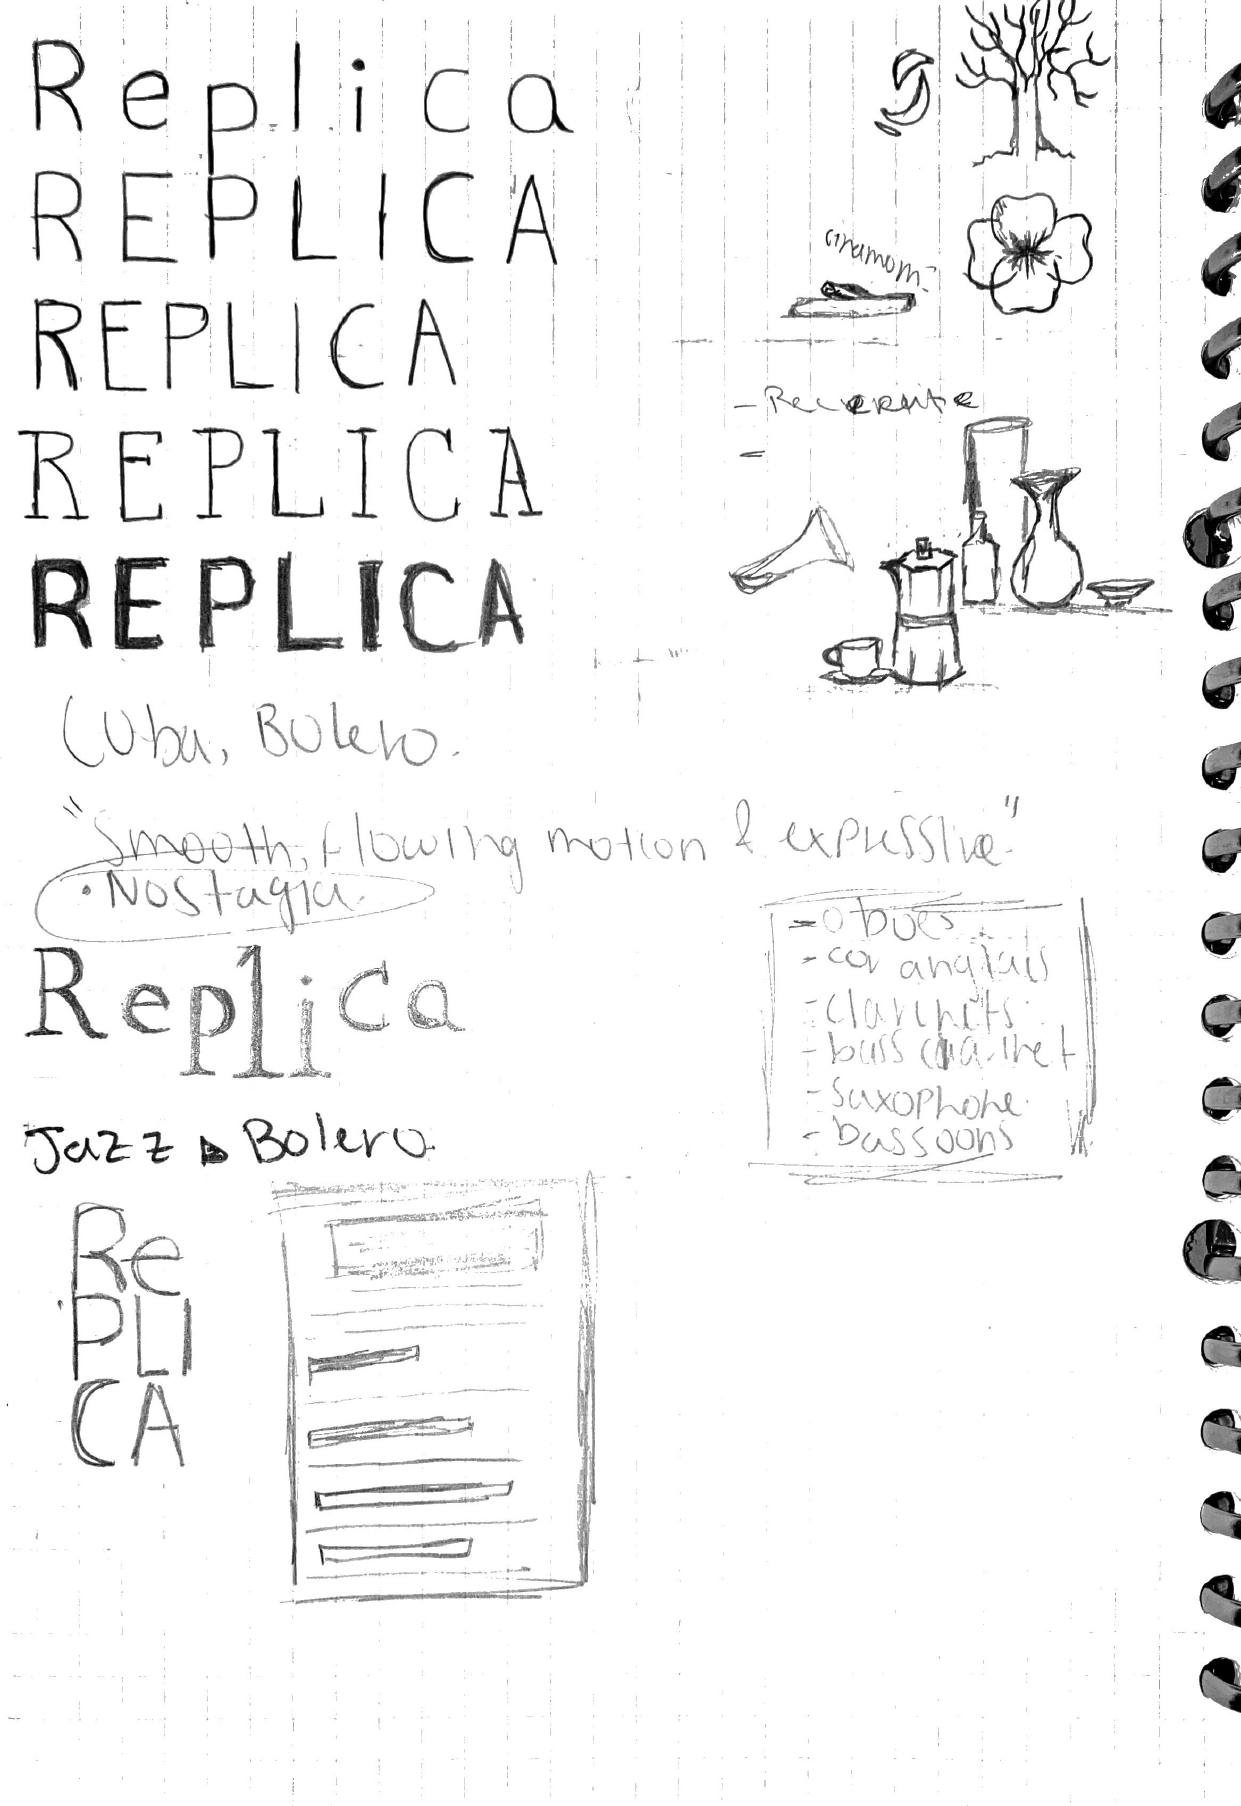 Replica
REPLICA
REPLICA
REPLICA
REPLICA
Cuba, Bolero.
"Smooth, flowing motion & expressive"
• Nostagia.
Replica
Jazz Bolero
Re
PLI
CA
cinamom
- oboes
- cor anglais
- clarinets
- bass
- saxophone
- bassoons